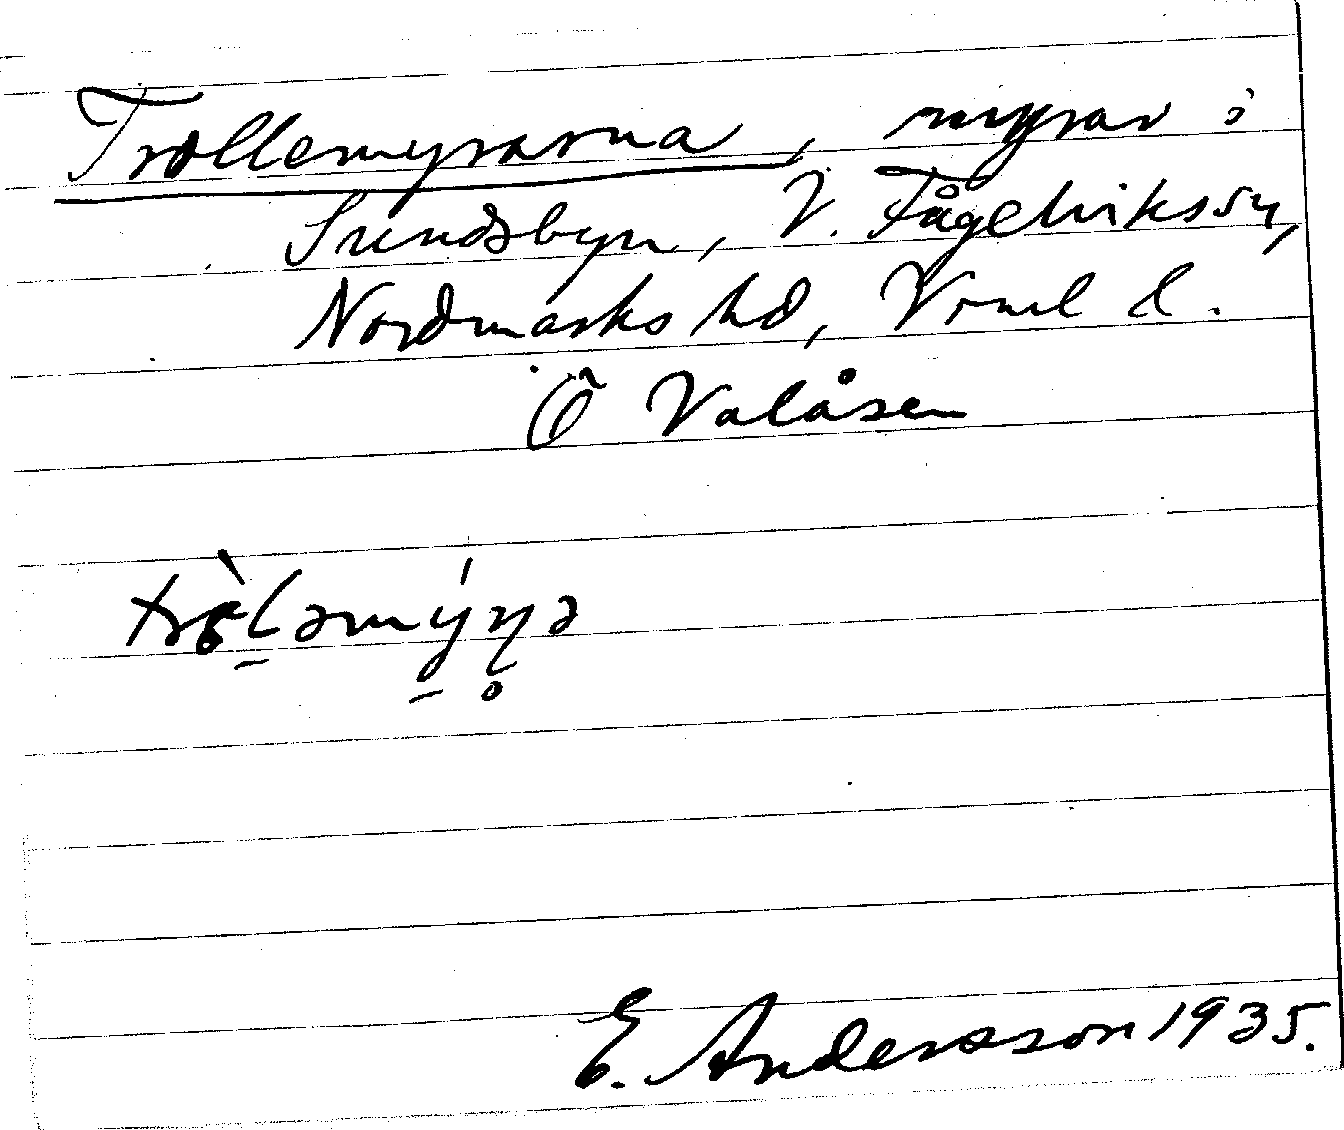 Trollemyrarna, myrar i
Sundsbyn, V. Fågelvikssn,
Nordmarks hd, Vrml l.
Ö Valåsen
E. Andersson 1935.